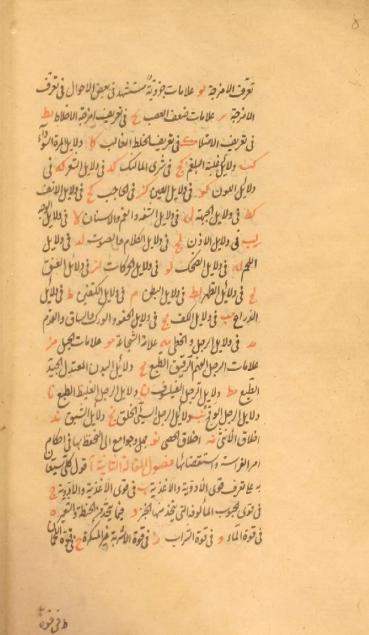 تعرف الامزجة يو علامات جزوية مستشهد فى بعض الاحوال فى تعرف
الامزجة يز علامات ضعف العصب يح فى تعريف امزجة الاخلاط يط
فى تعريف الامتلا ك فى تعريف الخلط الغالب كا دلايل المرة السوداء
كب دلايل غلبة البلغم كج فى شرى المماليك كد فى دلايل الشعر كه فى
دلايل اللون كو فى دلايل العين كز فى الحاجب كح فى دلايل الانف
كط فى دلايل الجبهة ل فى دلايل الشفة والفم والاسنان لا فى دلايل الوجه
لب فى دلايل الاذن لج فى دلايل الكلام والصوت لد فى دلايل
اللحم له فى دلايل الضحك لو فى دلايل الحركات لز فى دلايل العنق
لح فى دلايل الظهر لط فى دلايل البطن م فى دلايل الكتفين ما فى دلايل
الذراع مب فى دلايل الكف مج فى دلايل الحقو والورك والساق والقدم
مد فى دلايل الرجل والخطى مه علامة الشجاعة مو علامات الجبان مز
علامات الرجل الفهم الرقيق الطبع مح دلايل البدن المعتدل الجيد
الطبع مط دلايل الرجل الفيلسوف ن دلايل الرجل الغليظ الطبع نا
دلايل الرجل الوقح نب دلايل الرجل السيئ الخلق نج دلايل الشبق ند
اخلاق الانثى نه اخلاق الخصى نو جمل وجوامع الى التحفظ بها فى احكام
امر الفراسة واستقصائها فصول المقالة الثالثة ا قول كلى
به على تعرف قوى الادوية والاغذية ب فى قوى الاغذية والادوية ج
فى قوى الحبوب المالوفة التى يتخذ منها الخبز د فيما يتخذ من الحنطة والشعير ه
فى قوة الماء و فى قوة الشراب ز فى قوة الاشربة غير المسكرة ح فى قوة
ط فى قوة